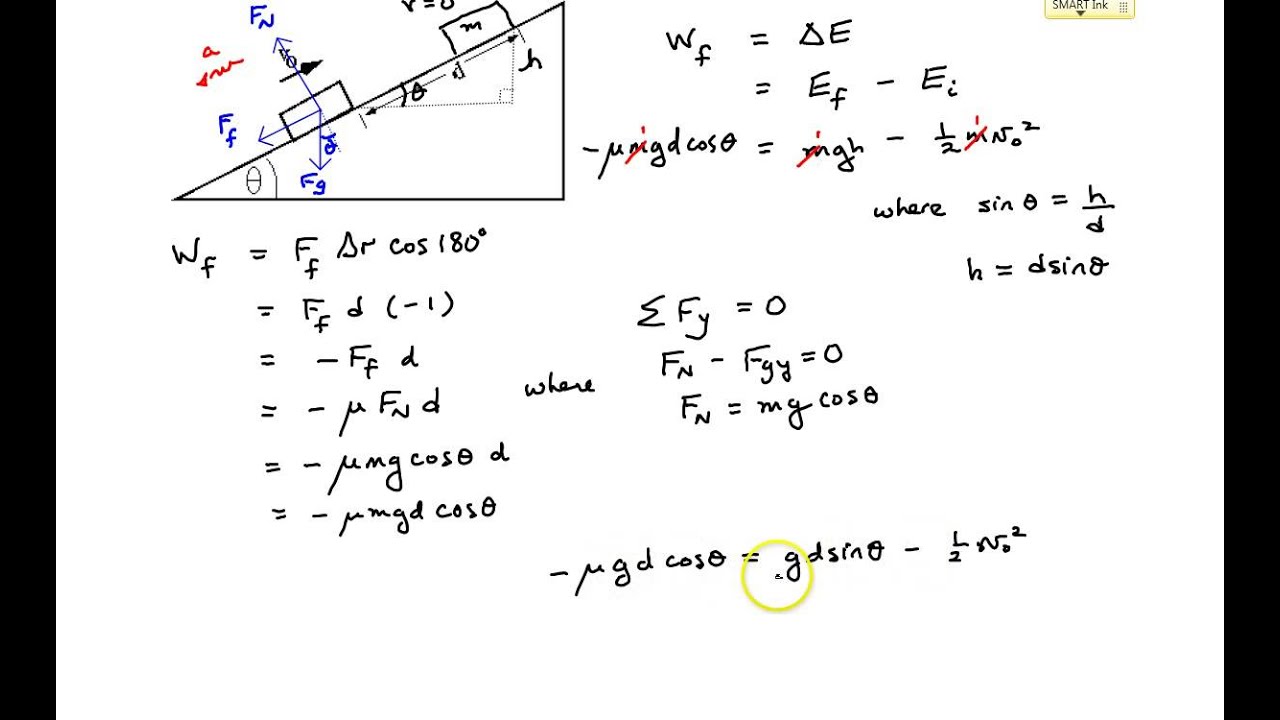 SMART Ink
v = 0
F_N
m
a
v_0
d
h
θ
F_f
θ
F_g
θ
W_f = ΔE
= E_f - E_i
-μmgd cosθ = mgh - 1/2 mv_0^2
where sin θ = h/d
h = d sinθ
W_f = F_f Δr cos 180°
= F_f d (-1)
= - F_f d
= - μ F_N d
= - μmg cosθ d
= - μmgd cosθ
where
Σ F_y = 0
F_N - F_gy = 0
F_N = mg cosθ
- μgd cosθ = gd sinθ - 1/2 v_0^2